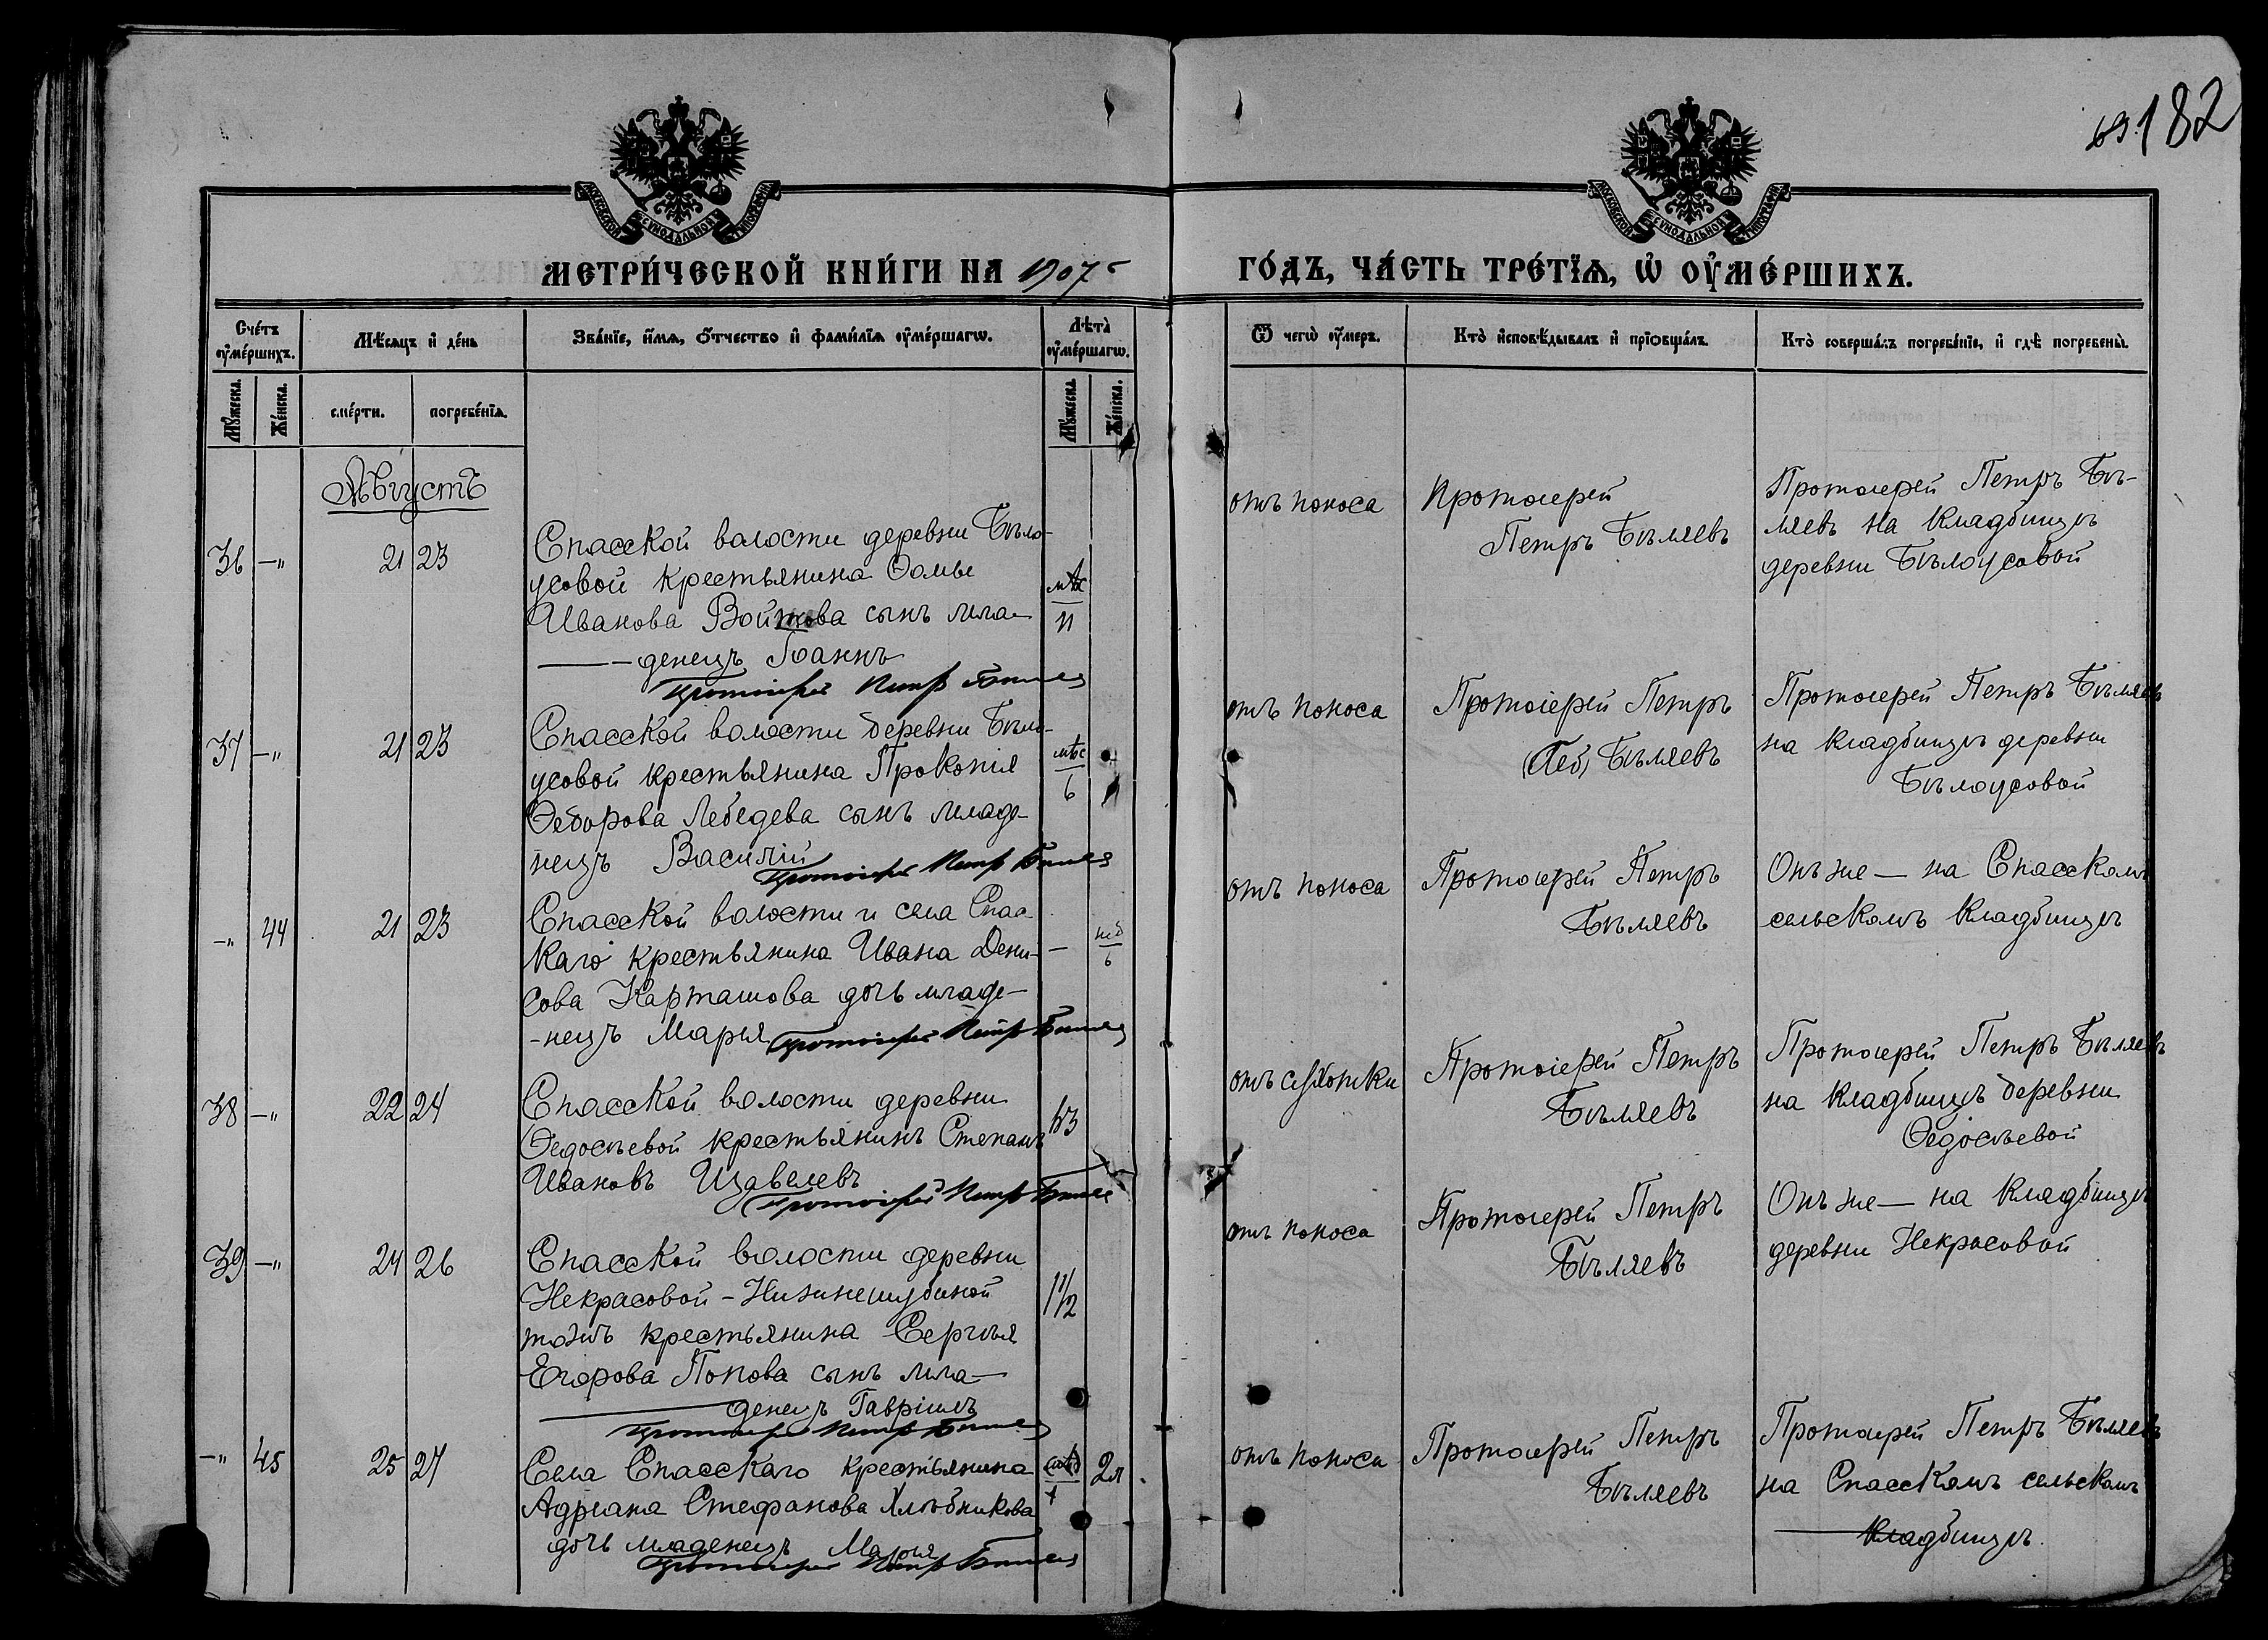 69 182
МОСКОВСКОЙ СѴНОДАЛЬНОЙ ТИПОГРАФІИ
МОСКОВСКОЙ СѴНОДАЛЬНОЙ ТИПОГРАФІИ
МЕТРИ́ЧЕСКОЙ КНИ́ГИ НА 1907
ГО́ДЪ, ЧА́СТЬ ТРЕ́ТЇѦ, Ѡ҆ ОУ҆МЕ́РШИХЪ.
Сче́тъ оу҆ме́ршихъ.
Мѣ́сяцъ и҆ де́нь
Зва́нїе, и҆́мѧ, ѻ҆́тчество и҆ фами́лїѧ оу҆ме́ршагѡ.
Лѣ́та оу҆ме́ршагѡ.
Ѿ чегѡ̀ оу҆́меръ.
Кто̀ и҆сповѣ́дывалъ и҆ прїѡбща́лъ.
Кто̀ соверша́лъ погребе́нїе, и҆ гдѣ̀ погребены̀.
Мꙋ́жеска.
Же́нска.
сме́рти.
погребе́нїѧ.
Мꙋ́жеска.
Же́нска.
Августъ
36 —„ 21 23
Спасской волости деревни Бѣло-
усовой крестьянина Ѳомы
Иванова Войтова сынъ мла-
денецъ Іоаннъ
мѣс 11
Протоіерей Петръ Бѣляев
отъ поноса
Протоіерей
Петръ Бѣляевъ
Протоіерей Петръ Бѣ-
ляевъ на кладбищѣ
деревни Бѣлоусовой
37 —„ 21 23
Спасской волости деревни Бѣло-
усовой крестьянина Прокопія
Ѳедорова Лебедева сынъ младе-
нецъ Василій
мѣс 6
Протоіерей Петръ Бѣляев
отъ поноса
Протоіерей Петръ
(Леб) Бѣляевъ
Протоіерей Петръ Бѣляевъ
на кладбищѣ деревни
Бѣлоусовой
—„ 44 21 23
Спасской волости и села Спас-
каго крестьянина Ивана Дени-
сова Карташова дочь младе-
-нецъ Марія
— нед 6
Протоіерей Петръ Бѣляев
отъ поноса
Протоіерей Петръ
Бѣляевъ
Онъ же — на Спасскомъ
сельскомъ кладбищѣ
38 —„ 22 24
Спасской волости деревни
Ѳедосѣевой крестьянинъ Степанъ
Ивановъ Щавелевъ
Протоіерей Петръ Бѣляев
отъ сухотки
Протоіерей Петръ
Бѣляевъ
Протоіерей Петръ Бѣляевъ
на кладбищѣ деревни
Ѳедосѣевой
39 —„ 24 26
Спасской волости деревни
Некрасовой - Нижнешубиной
тожъ крестьянина Сергѣя
Егорова Попова сынъ мла-
денецъ Гавріилъ
1 1/2
Протоіерей Петръ Бѣляев
отъ поноса
Протоіерей Петръ
Бѣляевъ
Онъ же — на кладбищѣ
деревни Некрасовой
—„ 45 25 27
Села Спасскаго крестьянина
Адріана Стефанова Хлѣбникова
дочь младенецъ Марія
2л
Протоіерей Петръ Бѣляев
отъ поноса
Протоіерей Петръ
Бѣляевъ
Протоіерей Петръ Бѣляевъ
на Спасскомъ сельскомъ
кладбищѣ